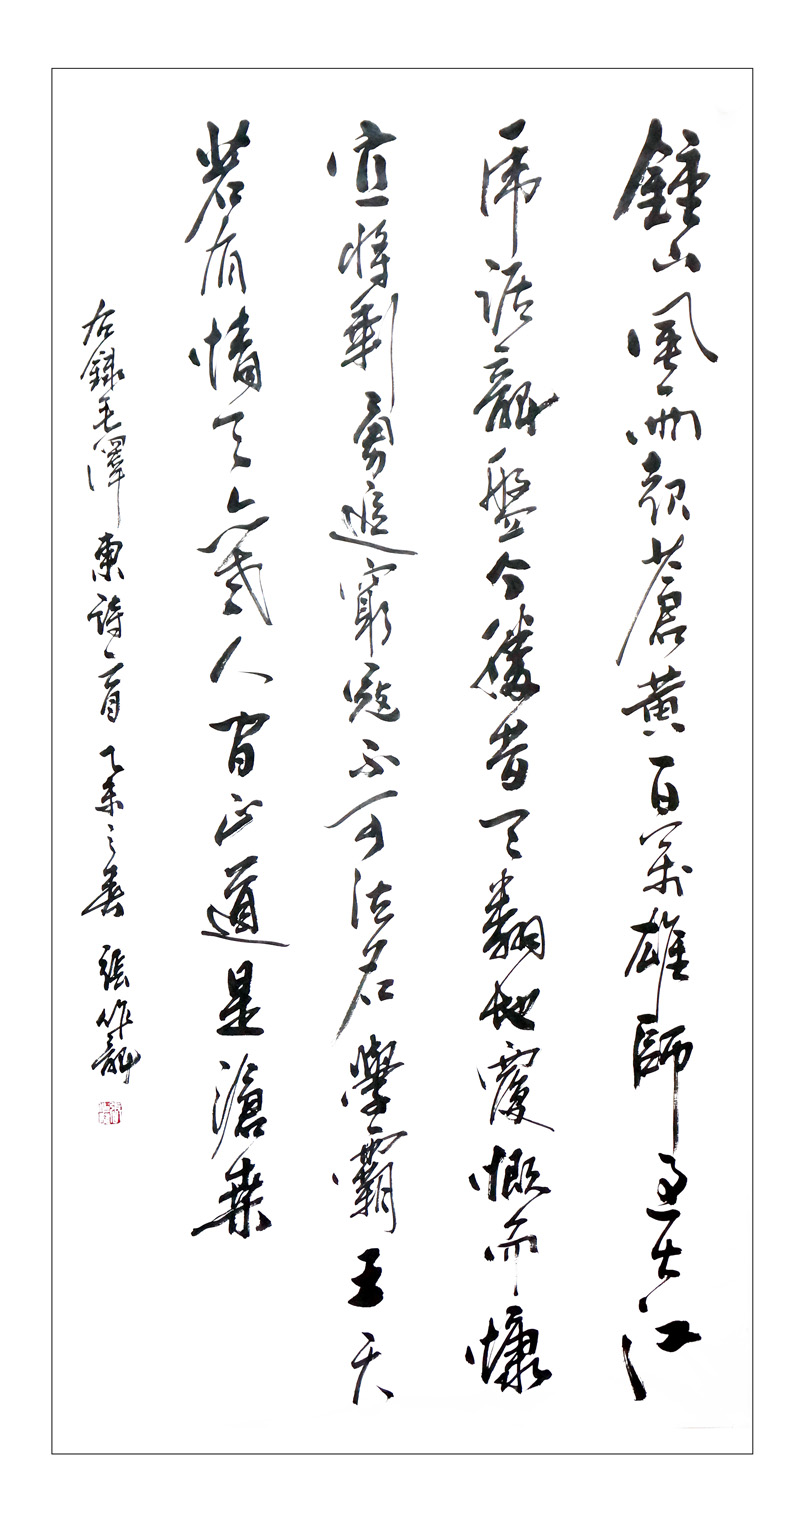 鍾山風雨起蒼黃百萬雄師過大江
虎踞龍盤今勝昔天翻地覆慨而慷
宜將剩勇追窮寇不可沽名學霸王天
若有情天亦老人間正道是滄桑
右錄毛澤東詩一首 乙未之春 張作龍